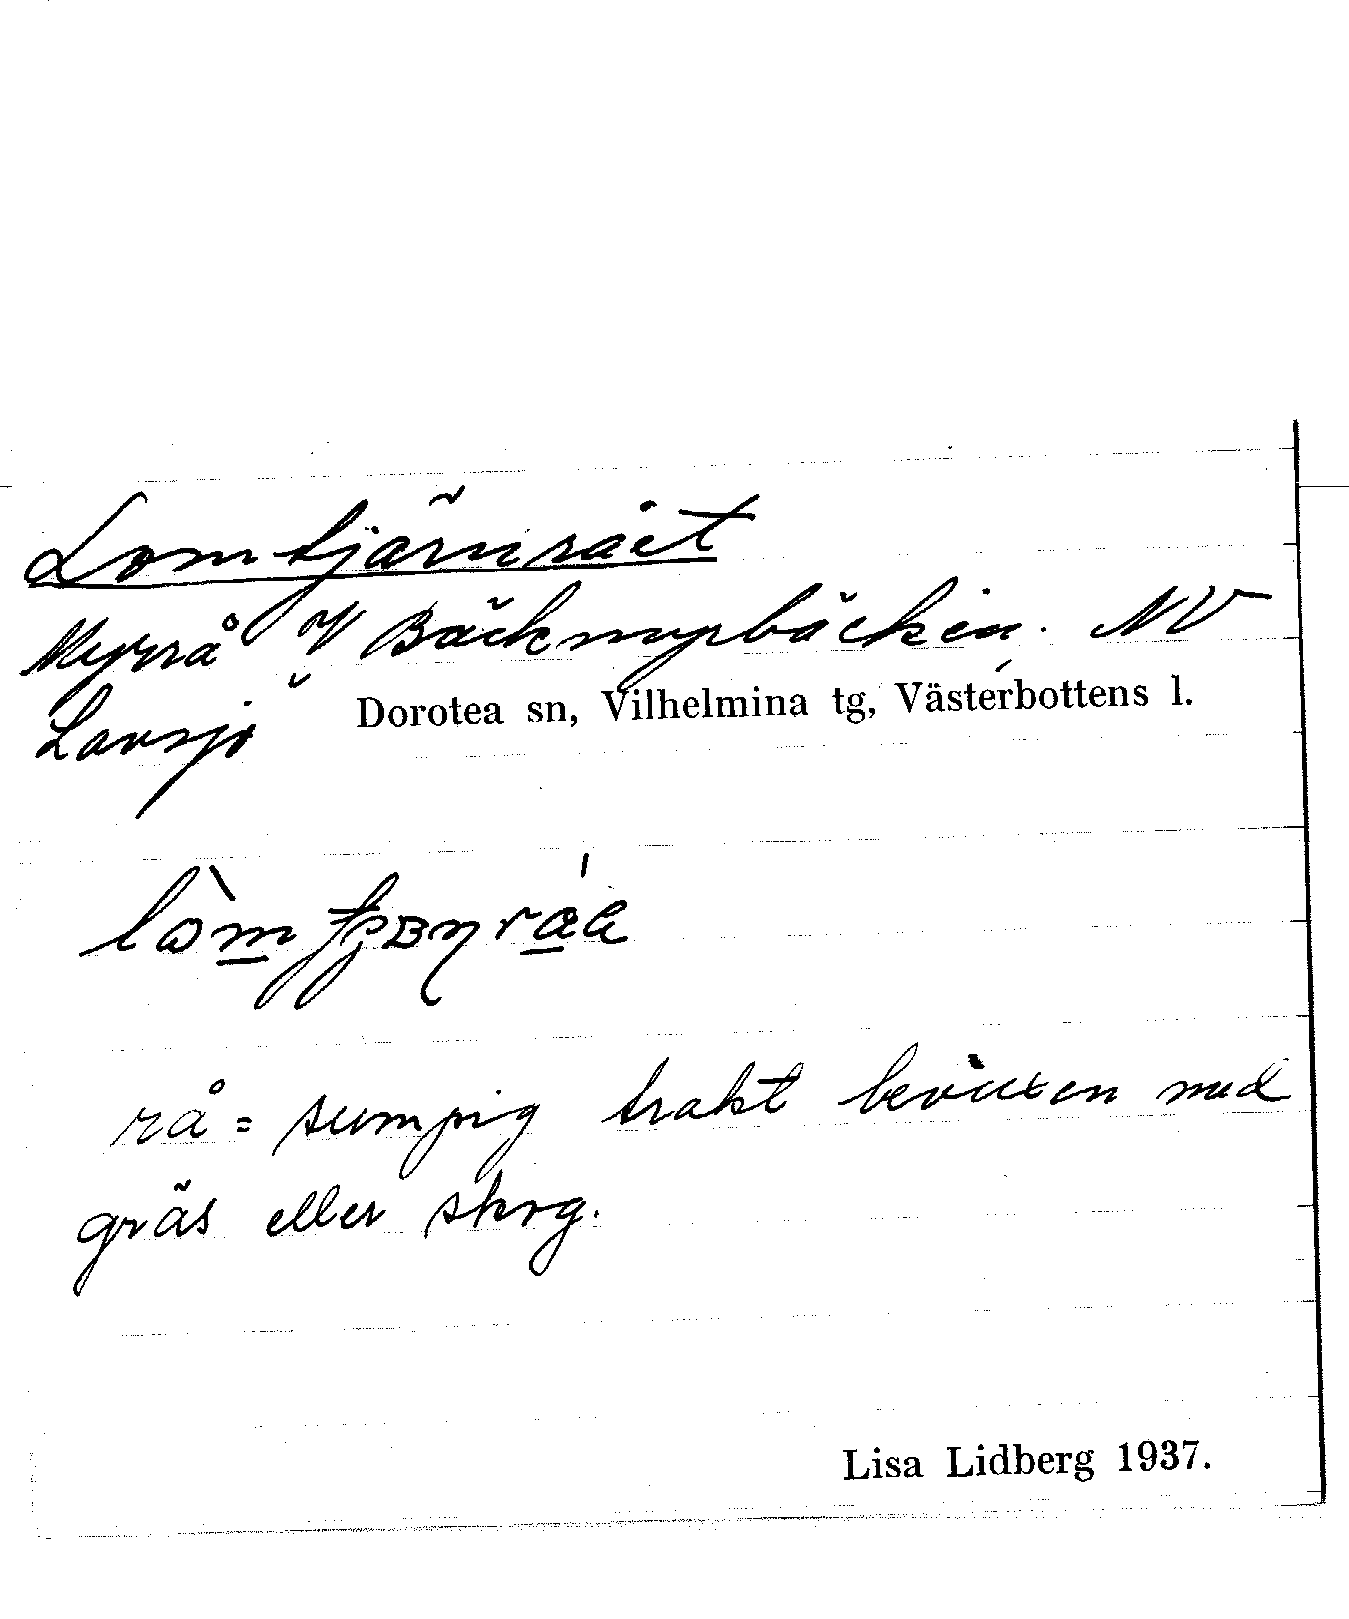 Lomtjärnrået
Myrrå V Bäckmyrbäcken. NV
Lavsjö Dorotea sn, Vilhelmina tg, Västerbottens l.
rå = sumpig trakt beväxen med
gräs eller skog.
Lisa Lidberg 1937.